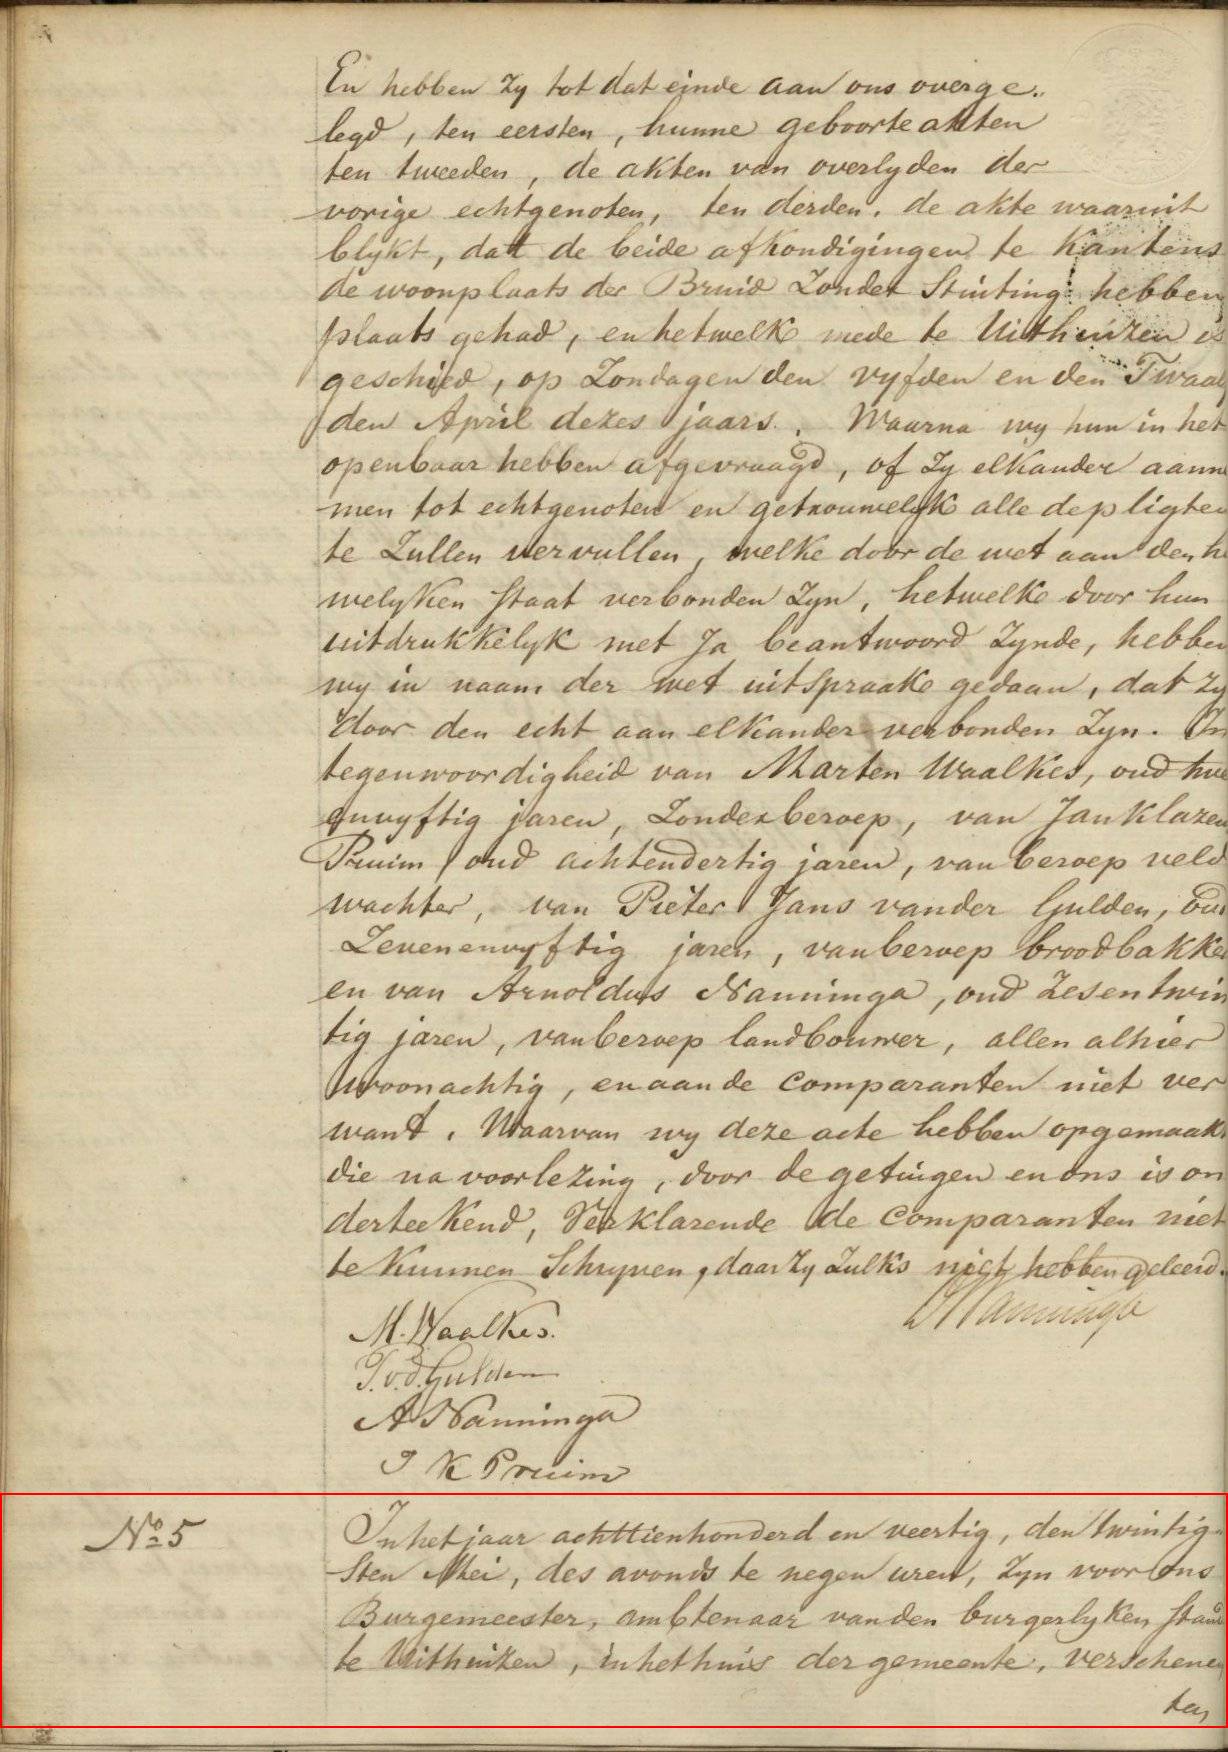 En hebben zy tot dat einde aan ons overge..
legd, ten eersten, hunne geboorte akten
ten tweeden, de akten van overlyden der
vorige echtgenoten, ten derden. de akte waaruit
blykt, dat de beide afkondigingen te Kantens
de woonplaats der Bruid zonder Stuiting hebben
plaats gehad, en hetwelk mede te Uithuizen is
geschied, op Zondagen den vyfden en den Twaalf
den April dezes jaars. Waarna wy hun in het
openbaar hebben afgevraagd, of zy elkander aanne
men tot echtgenoten en getrouwelyk alle de pligten
te zullen vervullen, welke door de wet aan den hu
welyken Staat verbonden zyn, hetwelk door hun
uitdrukkelyk met Ja beantwoord zynde, hebben
wy in naam der wet uitspraake gedaan, dat zy
door den echt aan elkander verbonden zyn. In
tegenwoordigheid van Marten Waalkes, oud twe
envyftig jaren, zonder beroep, van Jan Klazen
Pruim oud achtendertig jaren, van beroep veld
wachter, van Pieter Jans van der Gulden, oud
Zevenenvyftig jaren, van beroep broodbakker
en van Arnoldus Nanninga, oud Zesentwin
tig jaren, van beroep landbouwer, allen alhier
woonachtig, en aan de Comparanten niet ver
want. Waarvan wy deze acte hebben opgemaakt
die na voorlezing, door de getuigen en ons is on
derteekend, Verklarende de Comparanten niet
te kunnen Schryven, daar zy zulks niet hebben geleerd.
Nanninga
M. Waalkes.
P. v. d. Gulden
A Nanninga
J K Pruim
No 5
In het jaar achttienhonderd en veertig, den twintig
sten Mei, des avonds te negen uren, zyn voor ons
Burgemeester, ambtenaar van den burgerlyken Stand
te Uithuizen, in het huis der gemeente, verschenen
ten